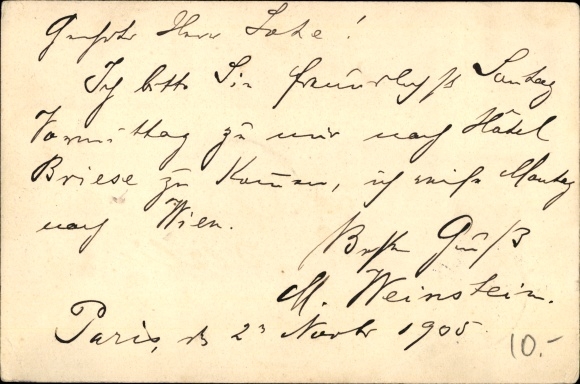 Geehrter Herr Lohe!
Ich bitte Sie freundlichst Sontag
Vormittag zu mir nach Hôtel
Briese zu Kom̅en, ich reise Montag
nach Wien.
Besten Gruß
M. Weinstein.
Paris, d 23 Novbr 1905
10.-